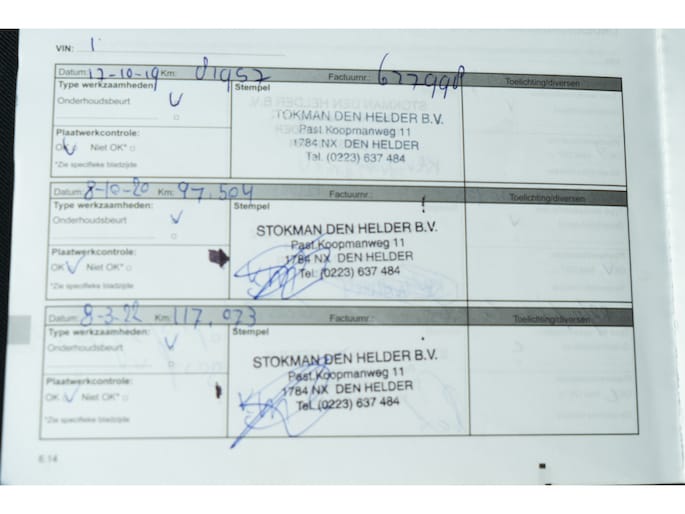 VIN:
Datum: 17-10-19 Km: 81957 Factuurnr.: 677998 Toelichting/diversen
Type werkzaamheden: Stempel
Onderhoudsbeurt V
STOKMAN DEN HELDER B.V.
Past Koopmanweg 11
Plaatwerkcontrole: 1784 NX DEN HELDER
OK V Niet OK* Tel. (0223) 637 484
*Zie specifieke bladzijde
Datum: 8-10-20 Km: 97.504 Factuurnr.: Toelichting/diversen
Type werkzaamheden: Stempel
Onderhoudsbeurt V
STOKMAN DEN HELDER B.V.
Past Koopmanweg 11
Plaatwerkcontrole: 1784 NX DEN HELDER
OK V Niet OK* Tel. (0223) 637 484
*Zie specifieke bladzijde
Datum: 8-3-22 Km: 117.073 Factuurnr.: Toelichting/diversen
Type werkzaamheden: Stempel
Onderhoudsbeurt V
STOKMAN DEN HELDER B.V.
Past Koopmanweg 11
Plaatwerkcontrole: 1784 NX DEN HELDER
OK V Niet OK* Tel. (0223) 637 484
*Zie specifieke bladzijde
6.14